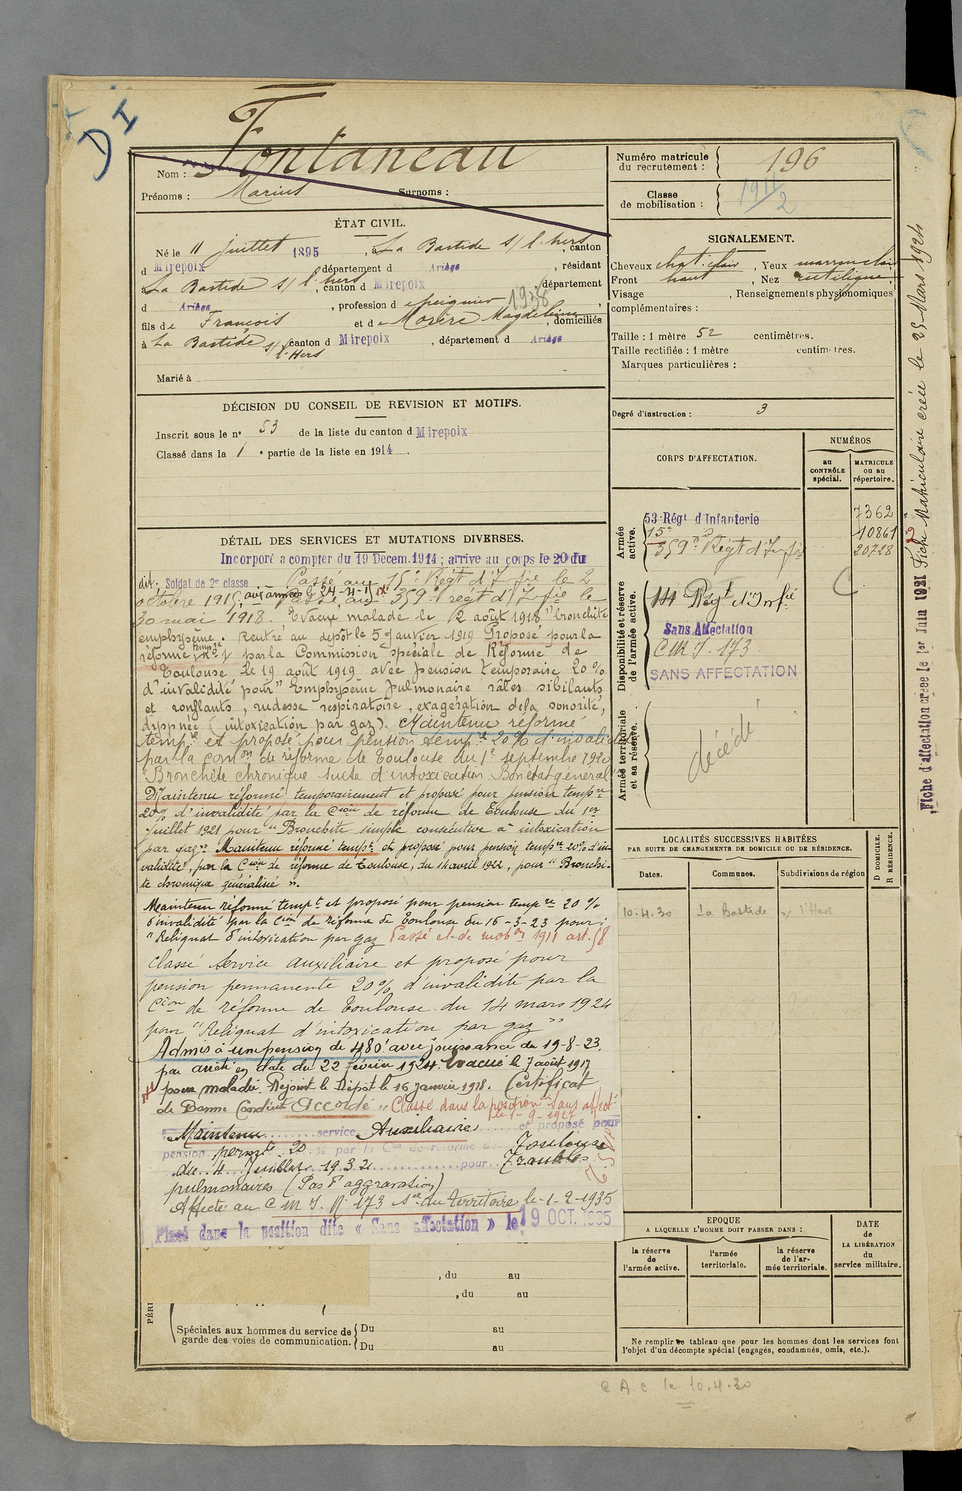 DI
Fontaneau
Nom :
Prénoms : Marius Surnoms :
ÉTAT CIVIL.
Né le 11 juillet 1895, La Bastide s/ l'hers canton
d Mirepoix, département d Ariège, résidant
La Bastide s/ l'hers, canton d Mirepoix, département
d Ariège, profession d peignier 1938,
fils de François et de Morère Magdeleine, domiciliés
à La Bastide s/ l'Hers canton d Mirepoix, département d Ariège
Marié à
DÉCISION DU CONSEIL DE REVISION ET MOTIFS.
Inscrit sous le n° 53 de la liste du canton d Mirepoix
Classé dans la 1 e partie de la liste en 1914.
DÉTAIL DES SERVICES ET MUTATIONS DIVERSES.
Incorporé a compter du 19 Décem. 1914 ; arrive au corps le 20 du
dit. Soldat de 2e classe. Passé au 15e Régt d'Infie le 2
octobre 1915, aux armées le 24-4-15. Passé au 359e régt d'Infie le
30 mai 1918. Evacué malade le 12 août 1918 "bronchite
emphysème. Rentré au dépôt le 5 janvier 1919 Proposé pour la
réforme tempre n° 1 par la Commission spéciale de Réforme de
Toulouse le 19 août 1919 avec pension temporaire 20%
d'invalidité pour "Emphysème pulmonaire râles sibilants
et ronflants, rudesse respiratoire, exagération de la sonorité,
dyspnée (intoxication par gaz). Maintenu réformé
tempre et proposé pour pension tempre 20% d'invalidité
par la comon de réforme de Toulouse du 1er septembre 1920
Bronchite chronique suite d'intoxication Bon état général
Maintenu réformé temporairement et proposé pour pension tempre
20% d'invalidité par la Cion de réforme de Toulouse du 1er
juillet 1921 pour "Bronchite simple consécutive à intoxication
par gaz" Maintenu réformé tempt et proposé pour pension tempre 20% d'in
validité, par la Cion de réforme de Toulouse, du 1 avril 1922, pour "Bronchi-
te chronique généralisé".
Maintenu réformé tempt et proposé pour pension tempre 20%
d'invalidité par la Cion de réforme de Toulouse du 16-3-23 pour :
"Reliquat d'intoxication par gaz Passé cl. de mobon 1911 art. 58
Classé Service auxiliaire et proposé pour
pension permanente 20% d'invalidité par la
Cion de réforme de Toulouse du 14 mars 1924
pour "Reliquat d'intoxication par gaz"
Admis à une pension de 480f avec jouissance du 19-8-23.
par arrêté en date du 22 février 1924. Evacué le 7 août 1917
pour maladie. Rejoint le Dépôt le 16 janvier 1918. Certificat
de Bonne Conduite Accordé. Classé dans la position sans affect
le 1-9-1927
Maintenu service Auxiliaire et proposé pour
pension permte 20 % par la Cion de réforme de Toulouse
du 4 Juillet 1932 pour Troubles
pulmonaires (Pas d'aggravation)
Affecté au C M I N° 173 Son du Territoire le 1-2-1935
Placé dans la position dite « Sans affectation » le 19 OCT. 1935
, du au
, du au
PÉRI
Spéciales aux hommes du service de garde des voies de communication. Du au
Du au
Numéro matricule du recrutement : 196
Classe de mobilisation : 1911/2
SIGNALEMENT.
Cheveux chat. clair, Yeux marron clair
Front haut, Nez rectiligne
Visage , Renseignements physionomiques
complémentaires :
Taille : 1 mètre 52 centimètres.
Taille rectifiée : 1 mètre centimètres.
Marques particulières :
Degré d'instruction : 3
CORPS D'AFFECTATION.
NUMÉROS
au CONTRÔLE spécial.
MATRICULE ou au répertoire.
Armée active.
53 Régt d'Infanterie 7362
15e 10861
359e Régt d'Infie 20728
Disponibilité et réserve de l'armée active.
14 Régt d'Infie
Sans Affectation
C M I. 173
SANS AFFECTATION
Armée territoriale et sa réserve.
décédé
LOCALITÉS SUCCESSIVES HABITÉES
PAR SUITE DE CHANGEMENTS DE DOMICILE OU DE RÉSIDENCE.
Dates. Communes. Subdivisions de région D DOMICILE. R RÉSIDENCE.
10.4.30 La Bastide s/ l'Hers
EPOQUE
A LAQUELLE L'HOMME DOIT PASSER DANS :
la réserve de l'armée active.
l'armée territoriale.
la réserve de l'armée territoriale.
DATE de LA LIBÉRATION du service militaire.
Ne remplir ce tableau que pour les hommes dont les services font
l'objet d'un décompte spécial (engagés, condamnés, omis, etc.).
Fiche d'affectation creee le 1er Juin 1921 Fiche Matriculaire créée le 25 Mars 1924
C A C le 10.4.30